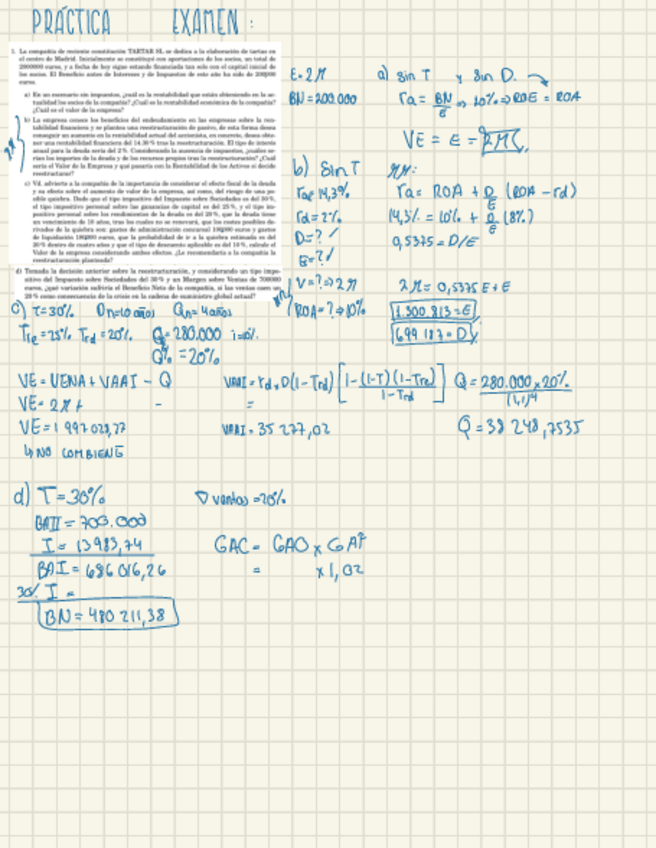 PRÁCTICA EXAMEN:
1. La compañía de reciente constitución TARTAR SL se dedica a la elaboración de tartas en
el centro de Madrid. Inicialmente se constituyó con aportaciones de los socios, un total de
2000000 euros, y a fecha de hoy sigue estando financiada tan solo con el capital inicial de
los socios. El Beneficio antes de Intereses y de Impuestos de este año ha sido de 200000
euros.
a) En un escenario sin impuestos, ¿cuál es la rentabilidad que están obteniendo en la ac-
tualidad los socios de la compañía? ¿Cuál es la rentabilidad económica de la compañía?
¿Cuál es el valor de la empresa?
b) La empresa conoce los beneficios del endeudamiento en las empresas sobre la ren-
tabilidad financiera y se plantea una reestructuración de pasivo, de esta forma desea
conseguir un aumento en la rentabilidad actual del accionista, en concreto, desea obte-
ner una rentabilidad financiera del 14.30 % tras la reestructuración. El tipo de interés
anual para la deuda sería del 2 %. Considerando la ausencia de impuestos, ¿cuáles se-
rían los importes de la deuda y de los recursos propios tras la reestructuración? ¿Cuál
sería el Valor de la Empresa y qué pasaría con la Rentabilidad de los Activos si decide
reestructurar?
c) Vd. advierte a la compañía de la importancia de considerar el efecto fiscal de la deuda
y su efecto sobre el aumento de valor de la empresa, así como, del riesgo de una po-
sible quiebra. Dado que el tipo impositivo del Impuesto Sociedades es del 30 %,
el tipo impositivo personal sobre las ganancias de capital es del 25 %, y el tipo im-
positivo personal sobre los rendimientos de la deuda es del 20 %, que la deuda tiene
un vencimiento de 10 años, tras los cuales no se renovará, que los costes posibles de-
rivados de la quiebra son: gastos de administración concursal 100000 euros y gastos
de liquidación 180000 euros, que la probabilidad de ir a la quiebra estimada es del
20 % dentro de cuatro años y que el tipo de descuento aplicable es del 10 %, calcule el
Valor de la empresa considerando ambos efectos. ¿Le recomendaría a la compañía la
reestructuración planteada?
d) Tomada la decisión anterior sobre la reestructuración, y considerando un tipo impo-
sitivo del Impuesto sobre Sociedades del 30 % y un Margen sobre Ventas de 700000
euros, ¿qué variación sufriría el Beneficio Neto de la compañía, si las ventas caen un
20 % como consecuencia de la crisis en la cadena de suministro global actual?
E=2M
BN=200.000
a) sin T y sin D.
ra = BN/E ⇒ 10% ⇒ ROE = ROA
VE = E = 2M€
b) sin T
ra=14,3%
rd=2%
D=? ✓
E=? ✓
V=? ⇒ 2M
ROA=? ⇒ 10%
MM:
ra = ROA + D/E (ROA - rd)
14,3% = 10% + D/E (8%)
0,5375 = D/E
2M = 0,5375 E + E
1.300.813 = E
699 187 = D
c) T=30% Dn=10 años Qn=4 años
Tre=25% Trd=20% Q=280.000 i=10%
Q% = 20%
VE = VENA + VAAI - Q
VE = 2M + -
VE = 1 997 028,27
↳ NO COMBIENE
VAAI = rd x D(1-Trd) [1 - (1-T)(1-Tre) / 1-Trd]
=
VAAI = 35 277,02
Q = 280.000 x 20% / (1,1)^4
Q = 38 248,7535
d) T=30%
BAII = 700.000
I = 13983,74
BAI = 686 016,26
30% I =
BN = 480 211,38
∇ ventas = 20%
GAC = GAO x GAF
= x 1,02